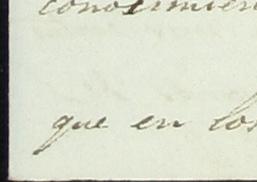 conocimien
que en los